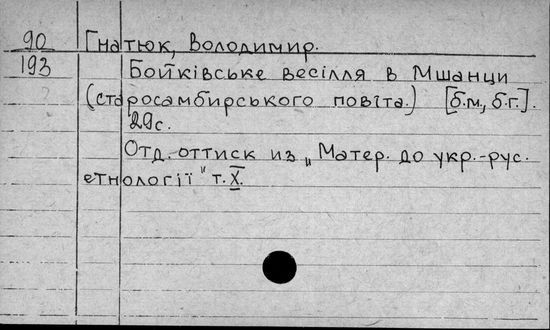 90 Гнатюк, Володимир.
193 Бойківське весілля в Мшанци
(старосамбирського повіта.) [б.м., б.г.].
29с.
Отд. оттиск из „Матер. до укр.-рус.
етнології" т. X.